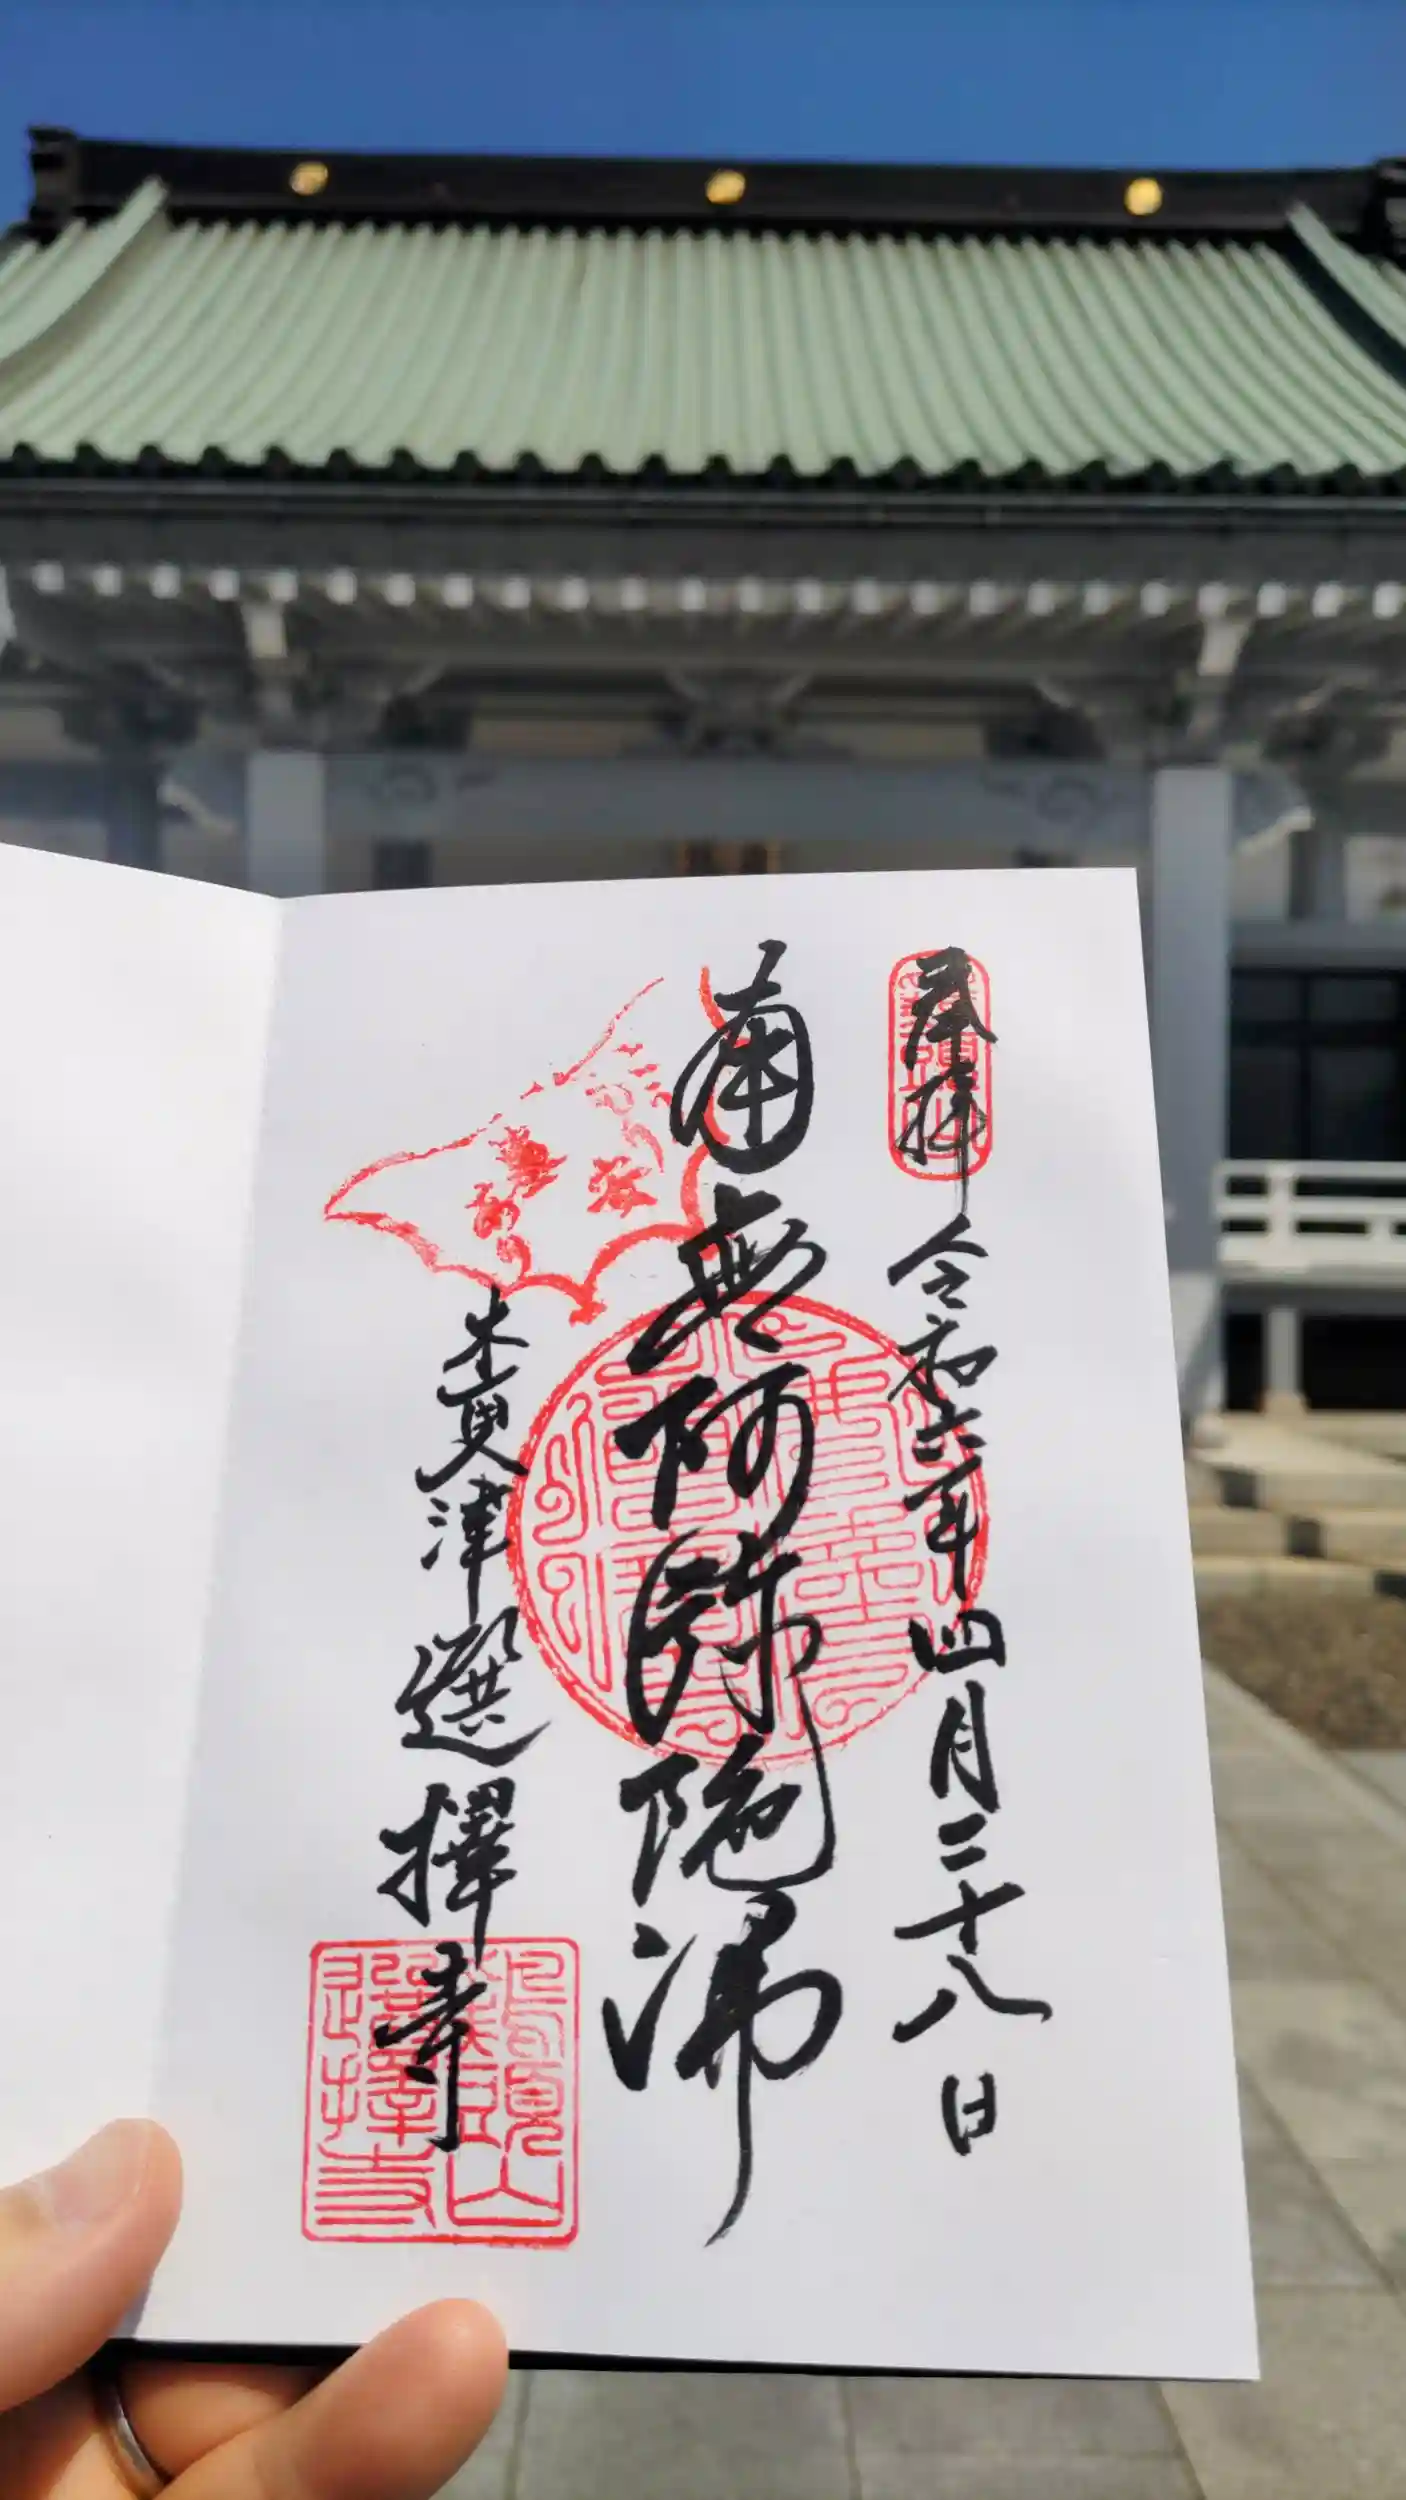 奉拝
令和六年四月二十八日
南無阿弥陀佛
木更津選擇寺